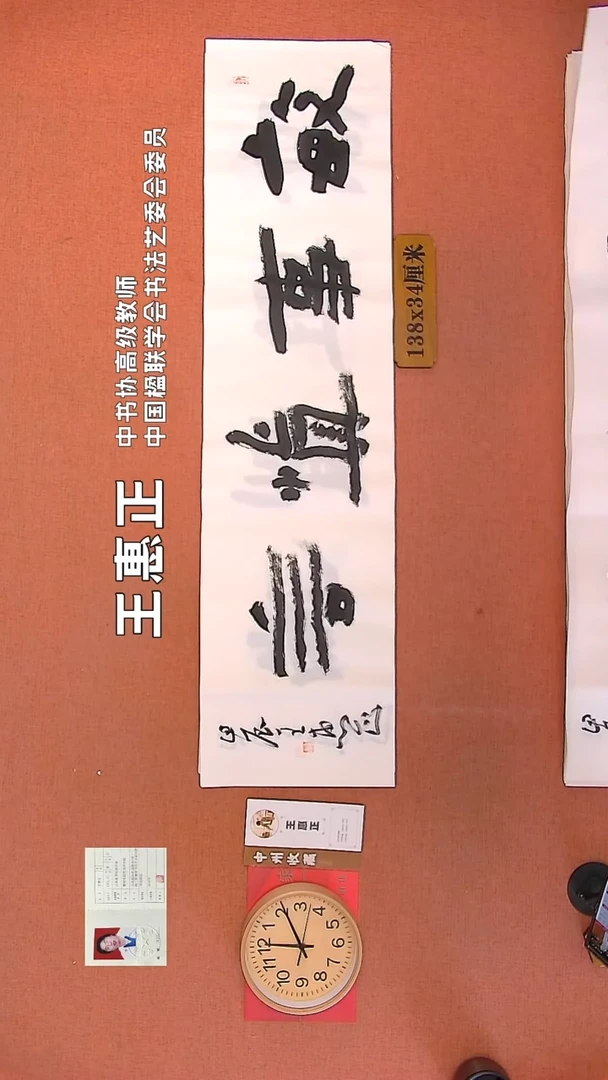 中书协高级教师
中国楹联学会书法艺委会委员
王惠正
敏事慎言
甲辰王惠正
138x34厘米
王惠正
中州收藏
12 1 2 3 4 5 6 7 8 9 10 11